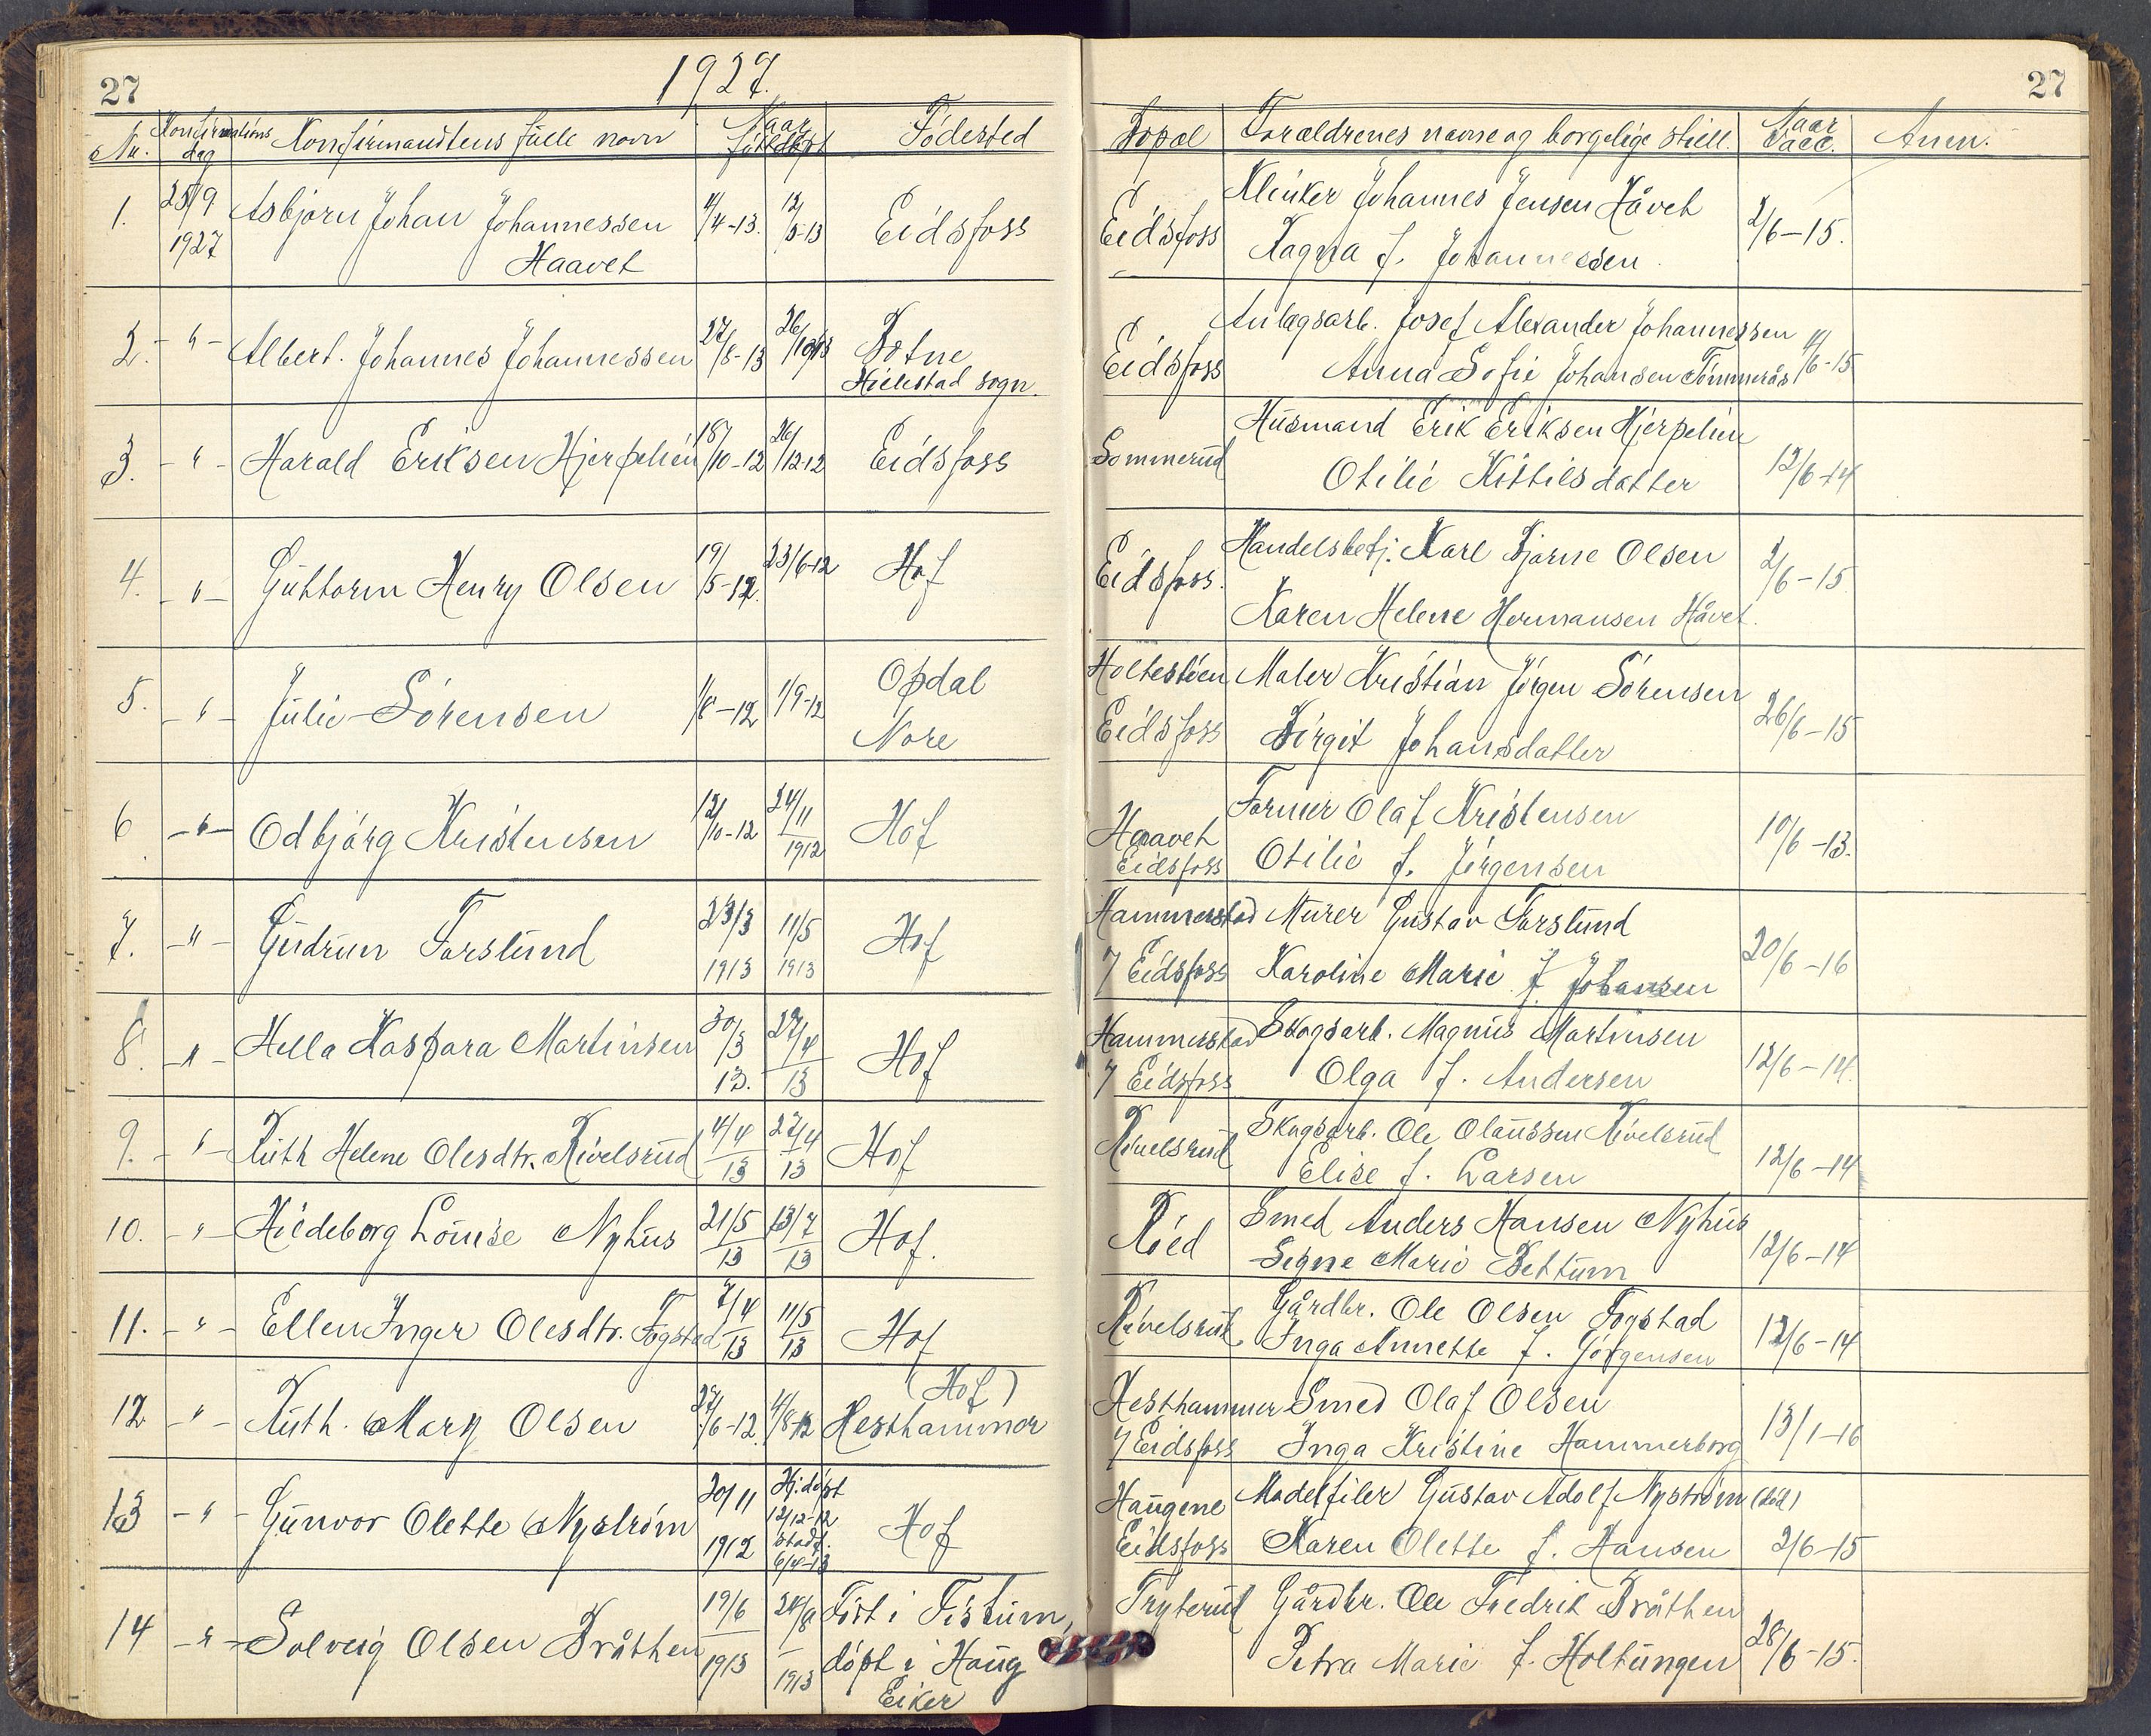 27
1927.
27
Nr.
Konfirmations dag
Konfirmandtens fulle navn
Naar född döpt
Födested
Bopæl
Forældrenes navne og borgelige still.
Naar Vacc.
Anm.
1.
25/9 1927
Asbjørn Johan Johannessen
Haavet
4/4-13.
12/5-13
Eidsfoss
Eidsfoss
Klinker Johannes Jensen Håvet
Ragna f. Johannessen
2/6-15.
2.
-"-
Albert Johannes Johannessen
27/8-13
26/10-13
Botne
Hillestad sogn.
Eidsfoss
Anlægsarb. Josef Alexander Johannessen
Anna Sofie Johansen Tömmerås
4/6-15
3.
-"-
Harald Eriksen Hjerpelien
18/10-12
26/12-12
Eidsfoss
Sommerud
Husmand Erik Eriksen Hjerpelien
Otilie Kittilsdatter
12/6-14
4.
-"-
Guttorm Henry Olsen
19/5-12.
23/6-12
Hof
Eidsfoss.
Handelsbetj. Karl Bjarne Olsen
Karen Helene Hermansen Håvet.
2/6-15
5.
-"-
Julie Sörensen
1/8-12
1/9-12
Opdal
Nore
Holtestöen
Eidsfoss
Maler Kristian Jörgen Sörensen
Birgit Johansdatter
26/6-15
6.
-"-
Odbjörg Kristensen
12/10-12
24/11 1912
Hof
Haavet
Eidsfoss
Former Olaf Kristensen
Otilie f. Jörgensen
10/6-13.
7.
-"-
Gudrun Forslund
23/3 1913
11/5 1913
Hof
Hammerstad
7 Eidsfoss
Murer Gustav Forslund
Karoline Marie f Johansen
20/6-16
8.
-"-
Hella Kaspara Martinsen
30/3 13.
27/4 13
Hof
Hammerstad
7 Eidsfoss
Skogsarb. Magnus Martinsen
Olga f. Andersen
12/6-14.
9.
-"-
Ruth Helene Olesdtr. Rivelsrud
4/4 13
27/4 13
Hof
Rivelsrud
Skogsarb. Ole Olaussen Rivelsrud
Elise f. Larsen
12/6-14
10.
-"-
Hildeborg Louise Nyhus
21/5 13
13/7 13
Hof.
Röed
Smed Anders Hansen Nyhus
Signe Marie Bettum
12/6-14
11.
-"-
Ellen Inger Olesdtr. Fogstad
7/4 13
11/5 13
Hof
Rivelsrud
Gårdbr. Ole Olsen Fogstad
Inga Annette f. Görgensen
12/6-14
12
-"-
Ruth. Mary Olsen
27/6-12.
4/8-12
(Hof)
Hesthammer
Hesthammer
7 Eidsfoss
Smed Olaf Olsen
Inga Kristine Hammerborg
13/1-16
13
-"-
Gunvor Olette Nyström
20/11 1912
Hj. döpt
12/12-12
Stadf.
6/4-13
Hof
Haugene
Eidsfoss
Modelfiler Gustav Adolf Nyström (död)
Karen Olette f. Hansen
2/6-15
14
-"-
Solveig Olsen Bråthen
19/6 1913
24/8 1913
Föst i Fiskum,
döpt i Haug
Eiker
Tryterud
Gårdbr. Ole Fredrik Bråthen
Petra Marie f. Holtungen
28/6-15.